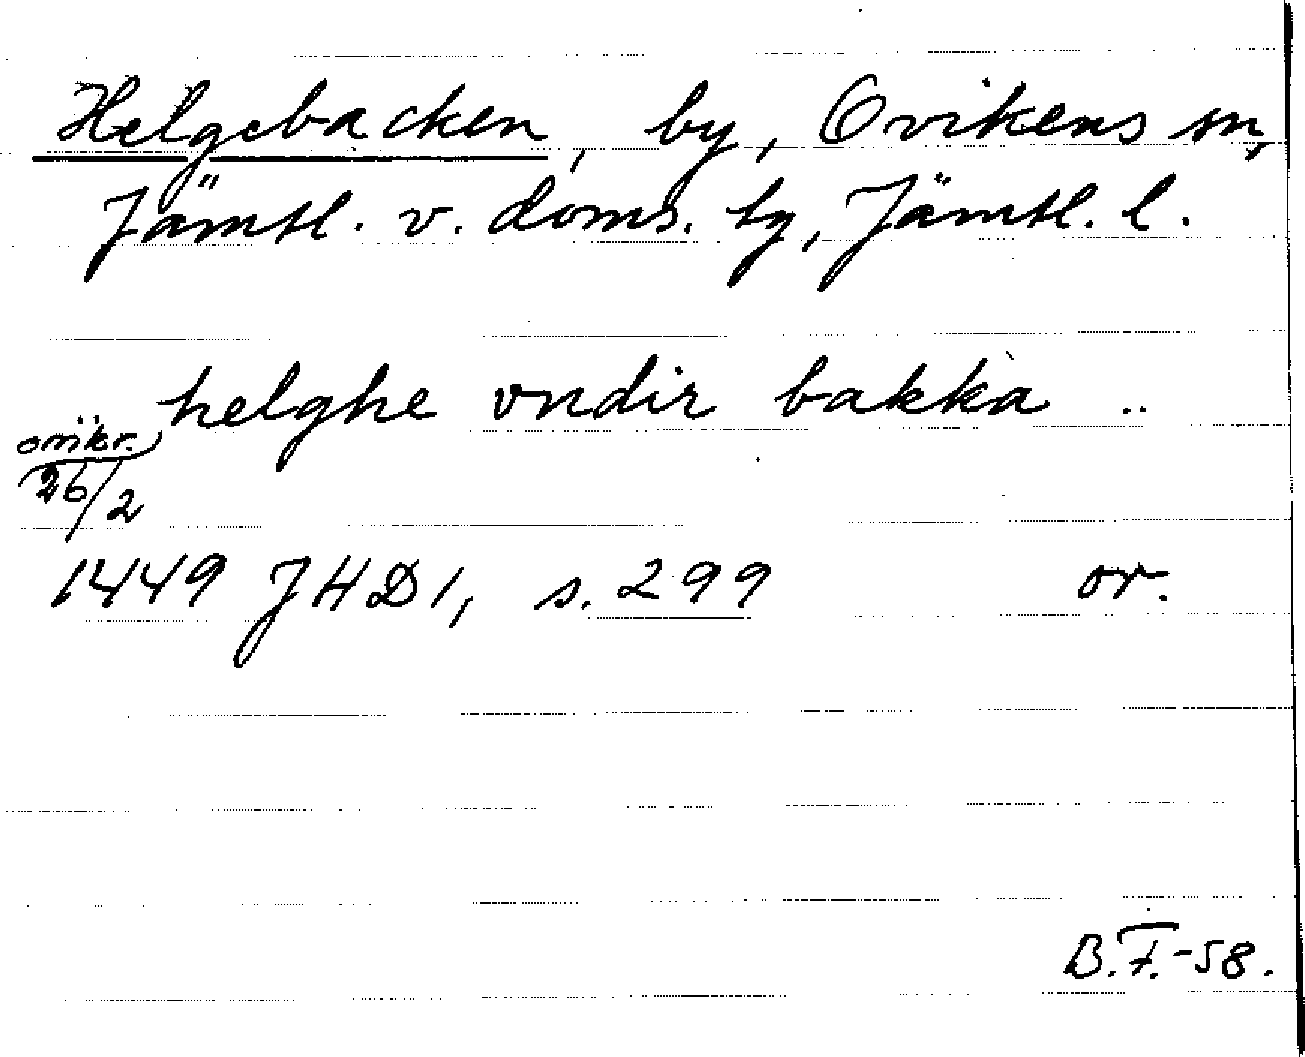 Helgebacken, by, Ovikens sn,
Jämtl. v. doms. tg, Jämtl. l.
helghe vndir bakka ..
omkr.
26/2
1449 JHD 1, s. 299 or.
B.F.-58.